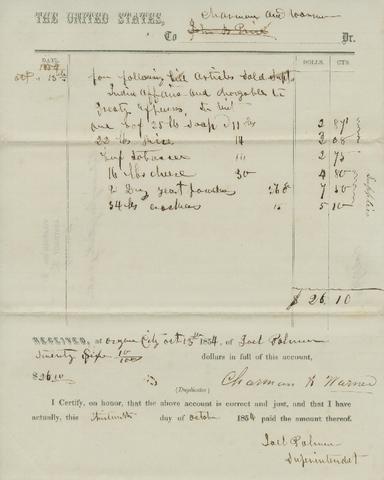 Charman and Warner
THE UNITED STATES,
To John B Price Dr.
DATE. DOLLS. CTS.
1854
Oct 13th for following Articles Sold Supt.
Indian Affairs and chargable to
Treaty Expences, To Wit
one Box 25 lb Soap 11 cts 2 87½
22 lbs Rice 14 3 08
Tobacco 2 75
16 lbs cheese 30 4 80
yeast powders 7 50
34 lbs crackers 15 5 10
Supplies
$ 26 10
RECEIVED, at Oregon City Oct 13th 1854, of Joel Palmer
Twenty Six 10/100 dollars in full of this account,
$26.10
Charman & Warner
(Duplicates)
I Certify, on honor, that the above account is correct and just, and that I have
actually, this day of October 1854 paid the amount thereof.
Joel Palmer
Superintendent